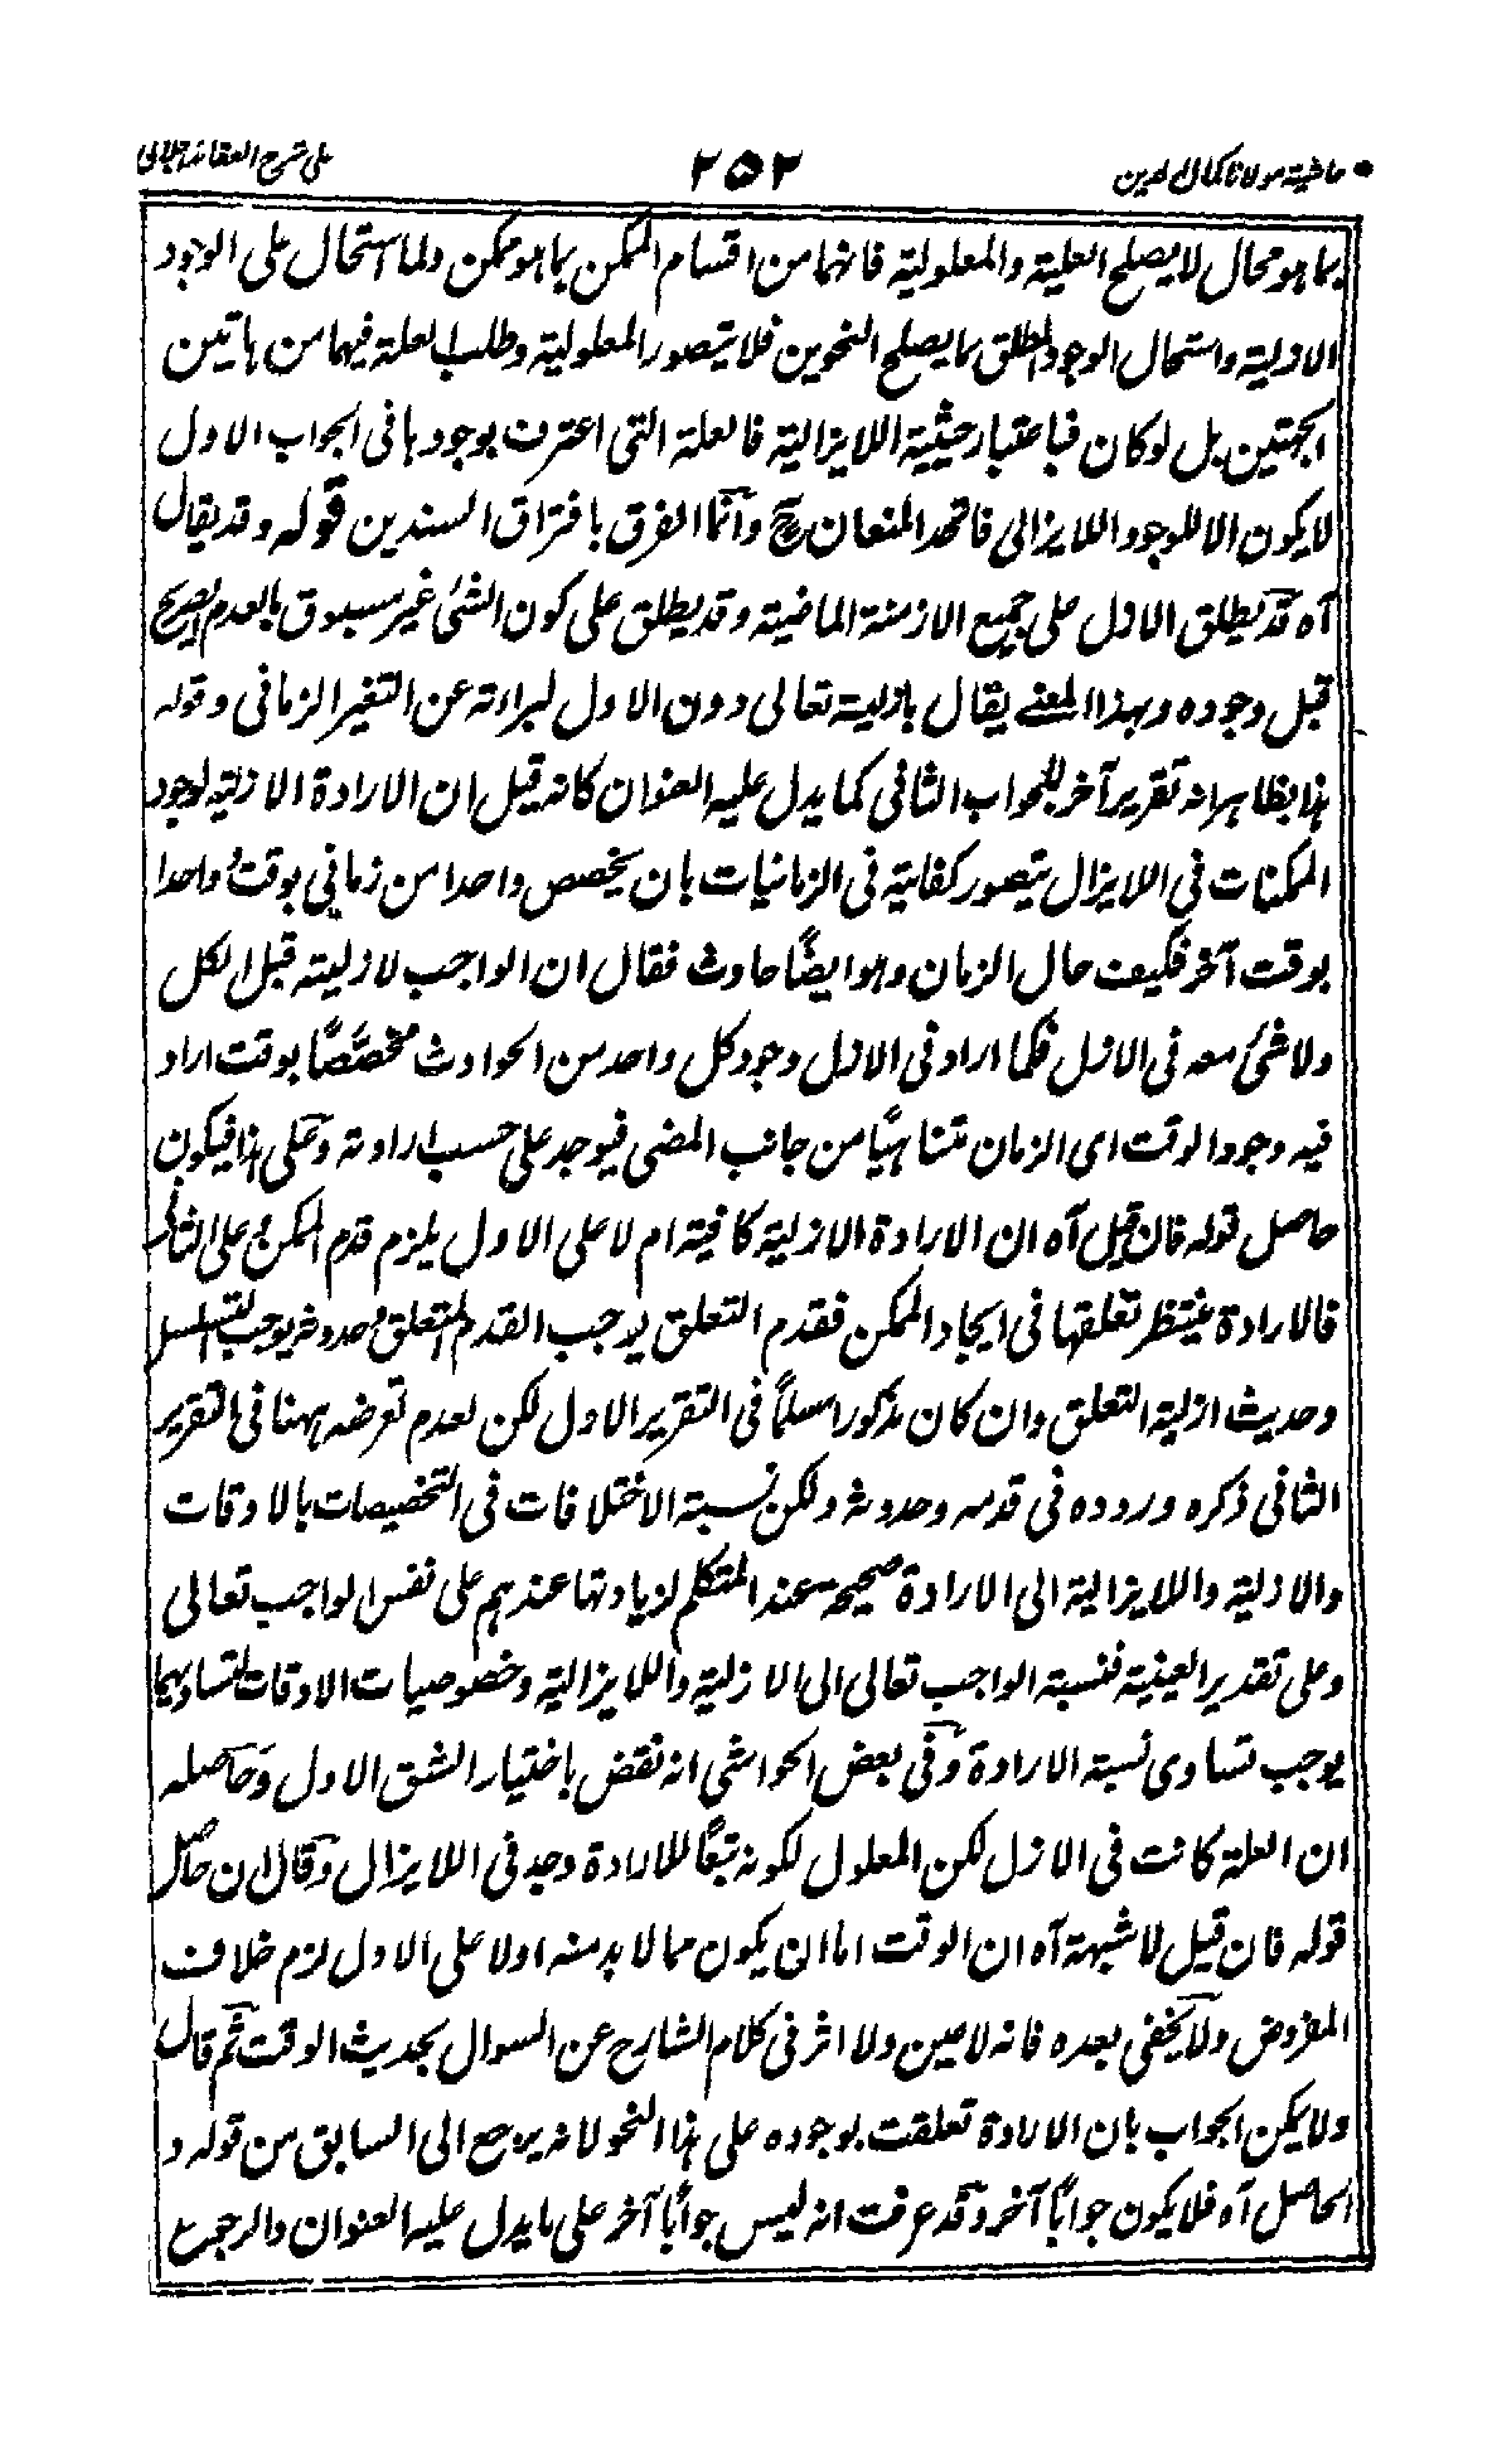 حاشية مولانا كمال الدين
٢٥٢
على شرح العقائد الجلالى
بما هو محال لا يصلح العلية والمعلولية فانهما من اقسام الممكن بما هو ممكن ولما استحال على الوجود
الازلية واستحال الوجود المطلق بما يصلح النحوين فلا يتصور المعلولية وطلب العلة فيهما من هاتين
الجهتين بل لو كان فباعتبار حيثية اللايزالية فالعلة التى اعترف بوجودها فى الجواب الاول
لا يكون الا للوجود اللايزالى فاتحد المنعان ح وانما الفرق بافتراق السندين قوله وقد يقال
آه قد يطلق الازل على جميع الازمنة الماضية وقد يطلق على كون الشئ غير مسبوق بالعدم الصريح
قبل وجوده وبهذا المعنى يقال بازلية تعالى دون الاول لبراءته عن التغير الزمانى وقوله
هذا بظاهره انه تقرير آخر للجواب الثانى كما يدل عليه العنوان كانه قيل ان الارادة الازلية لوجود
الممكنات فى اللايزال يتصور كفايته فى الزمانيات بان يخصص واحدا من زمانى بوقت وواحدا
بوقت آخر فكيف حال الزمان وهو ايضًا حادث فقال ان الواجب لازليته قبل الكل
ولا شئ معه فى الازل فكما اراد فى الازل وجود كل واحد من الحوادث مخصّصًا بوقت اراد
فيه وجود الوقت اى الزمان متناهيًا من جانب المضى فيوجد على حسب ارادته وعلى هذا فيكون
حاصل قوله فان قيل آه ان الارادة الازلية كافية ام لا على الاول يلزم قدم الممكن وعلى الثانى
فالارادة ينتظر تعلقها فى ايجاد الممكن فقدم التعلق يوجب القدم المتعلق وحدوثه يوجب التسلسل
وحديث ازلية التعلق وان كان مذكورا مسلمًا فى التقرير الاول لكن لعدم تعرضه ههنا فى التقرير
الثانى ذكره وردده فى قدمه وحدوثه ولكن نسبة الاختلافات فى التخصيصات بالاوقات
والازلية واللايزالية الى الارادة صحيحة عند المتكلم لزيادتها عندهم على نفس الواجب تعالى
وعلى تقدير العينية فنسبة الواجب تعالى الى الازلية واللايزالية وخصوصيات الاوقات لتساويها
يوجب تساوى نسبة الارادة وفى بعض الحواشى انه نقض باختيار الشق الاول وحاصله
ان العلة كانت فى الازل لكن المعلول لكونه تبعًا للارادة وجد فى اللايزال وقال ان حاصل
قوله فان قيل لا شبهة آه ان الوقت اما ان يكون مما لا بد منه اولا على الاول لزم خلاف
المفروض ولا يخفى بعده فانه لا عين ولا اثر فى كلام الشارح عن السوال بحديث الوقت ثم قال
ولا يمكن الجواب بان الارادة تعلقت بوجوده على هذا النحو لانه يرجع الى السابق من قوله و
الحاصل آه فلا يكون جوابًا آخر وقد عرفت انه ليس جوابًا آخر على ما يدل عليه العنوان والرجوع